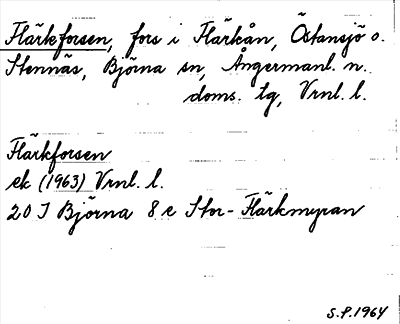 Flärkforsen, fors i Flärkån, Östansjö o.
Stennäs, Björna sn, Ångermanl. n.
doms. tg, Vrnl. l.
Flärkforsen
ek (1963) Vrnl. l.
20 J Björna 8 e Stor-Flärkmyran
S.P. 1964